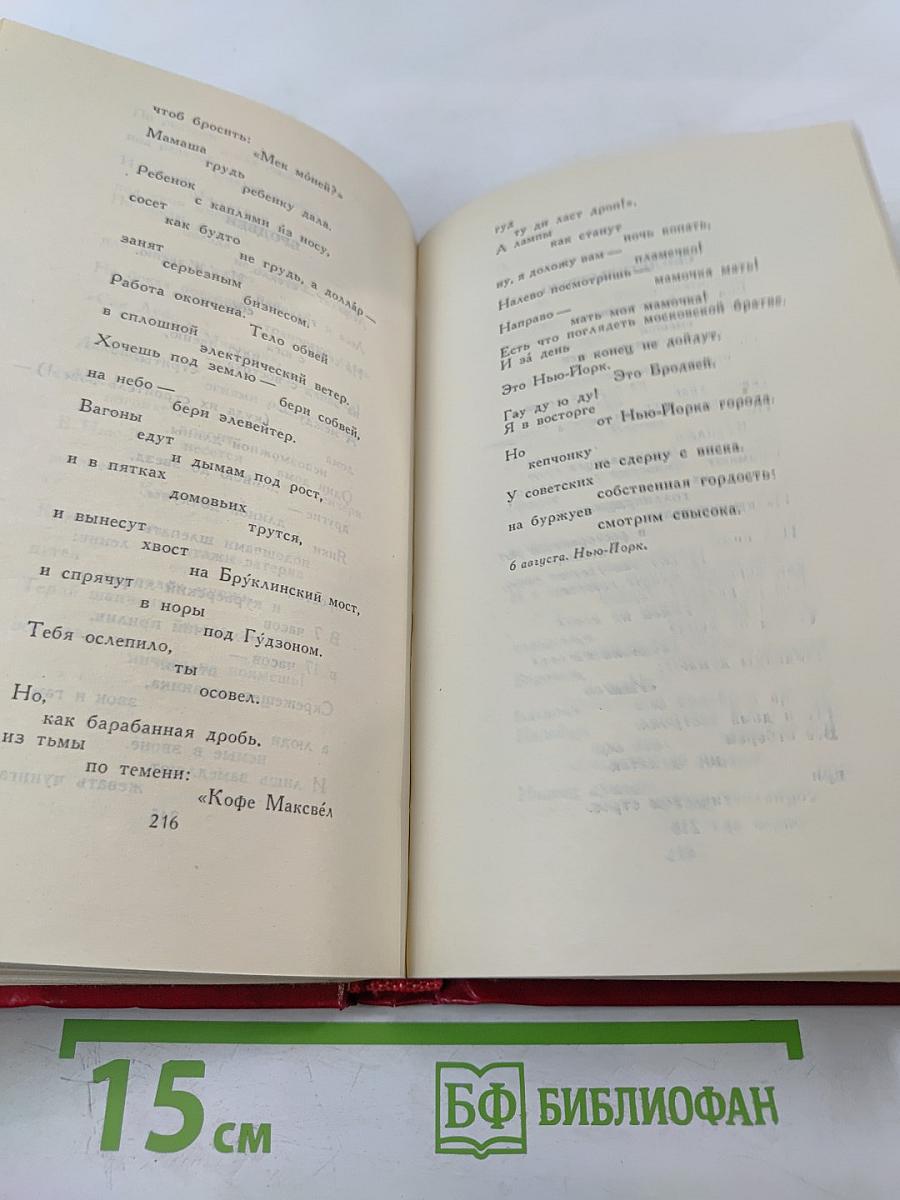 чтоб бросить:
«Мек мо́ней?»
Мамаша
грудь
ребенку дала.
Ребенок
с каплями и́з носу,
сосет
как будто
не грудь, а долла́р —
занят
серьезным
бизнесом.
Работа окончена.
Тело обвей
в сплошной
электрический ветер.
Хочешь под землю —
бери собвей,
на небо —
бери элевейтер.
Вагоны
едут
и дымам под рост,
и в пятках
домовьих
трутся,
и вынесут
хвост
на Бру́клинский мост,
и спрячут
в норы
под Гу́дзоном.
Тебя ослепило,
ты
осовел.
Но,
как барабанная дробь,
из тьмы
по темени:
«Кофе Максве́л
216
гуд
ту ди ласт дроп!».
А лампы
как станут
ночь копать,
ну, я доложу вам —
пламечко!
Налево посмотришь —
мамочка мать!
Направо —
мать моя мамочка!
Есть что поглядеть московской братве.
И за́ день
в конец не дойдут.
Это Нью-Йорк.
Это Бродвей.
Гау ду ю ду!
Я в восторге
от Нью-Йорка города.
Но
кепчонку
не сдерну с виска.
У советских
собственная гордость:
на буржуев
смотрим свысока.
6 августа. Нью-Йорк.
15 см
БФ БИБЛИОФАН